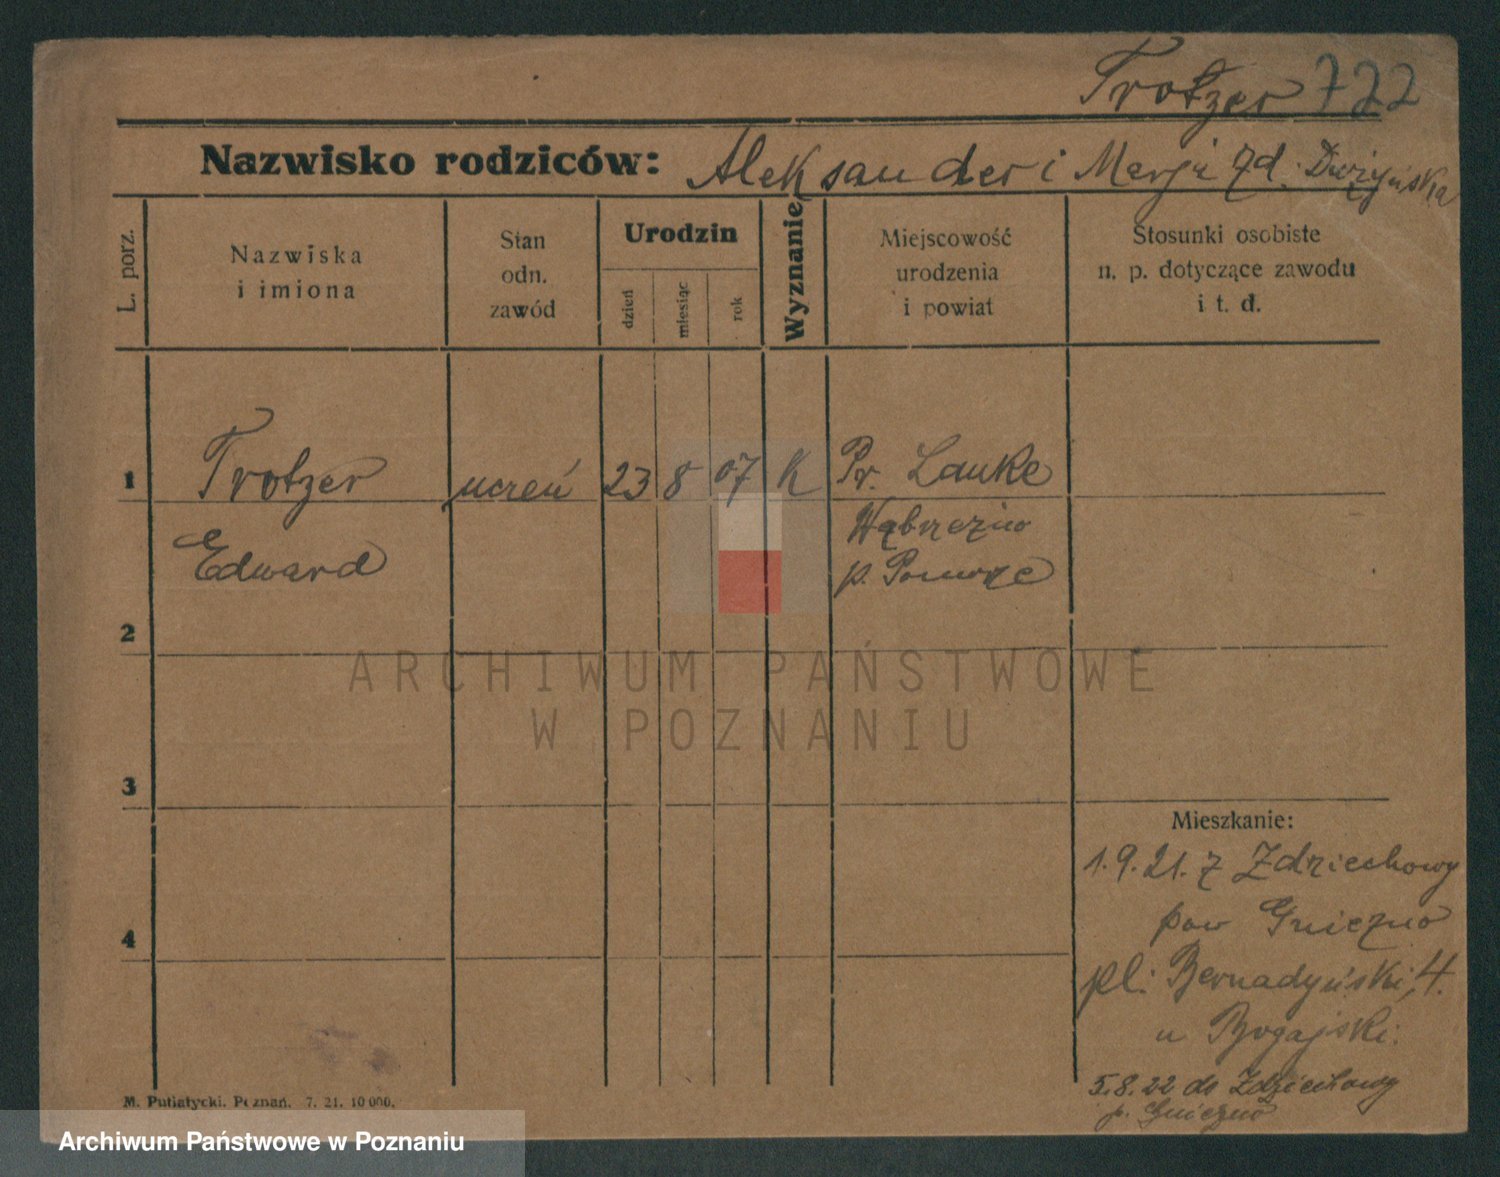 Trotzer 722
Nazwisko rodziców: Aleksander i Marja zd.
L. porz.
Nazwiska
i imiona
Stan
odn.
zawód
Urodzin
dzień
miesiąc
rok
Wyznanie
Miejscowość
urodzenia
i powiat
Stosunki osobiste
n. p. dotyczące zawodu
i t. d.
1 Trotzer uczeń 23 8 07 K Pr. Lanke
Wąbrzeźno
Edward p. Pomorze
2
ARCHIWUM PAŃSTWOWE
W POZNANIU
3
Mieszkanie:
1.9.21. z Zdziechowy
pow Gniezno
4
pl. Bernadyński, 4.
u Bogajski.
5.8.22 do Zdziechowy
p. Gniezno
M. Putiatycki. Poznań. 7. 21. 10 000.
Archiwum Państwowe w Poznaniu